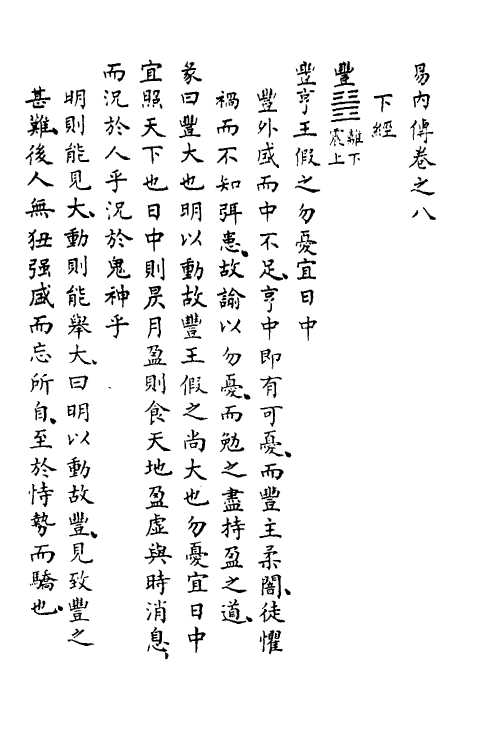 易內傳卷之八
下經
豐䷶離下震上
豐亨王假之勿憂宜日中
豐外盛而中不足、亨中即有可憂、而豐主柔闇、徒懼
禍而不知弭患、故諭以勿憂、而勉之盡持盈之道、
彖曰豐大也明以動故豐王假之尚大也勿憂宜日中
宜照天下也日中則昃月盈則食天地盈虛與時消息、
而況於人乎況於鬼神乎
明則能見大、動則能舉大、曰明以動故豐、見致豐之
甚難、後人無狃强盛而忘所自、至於恃勢而驕也、